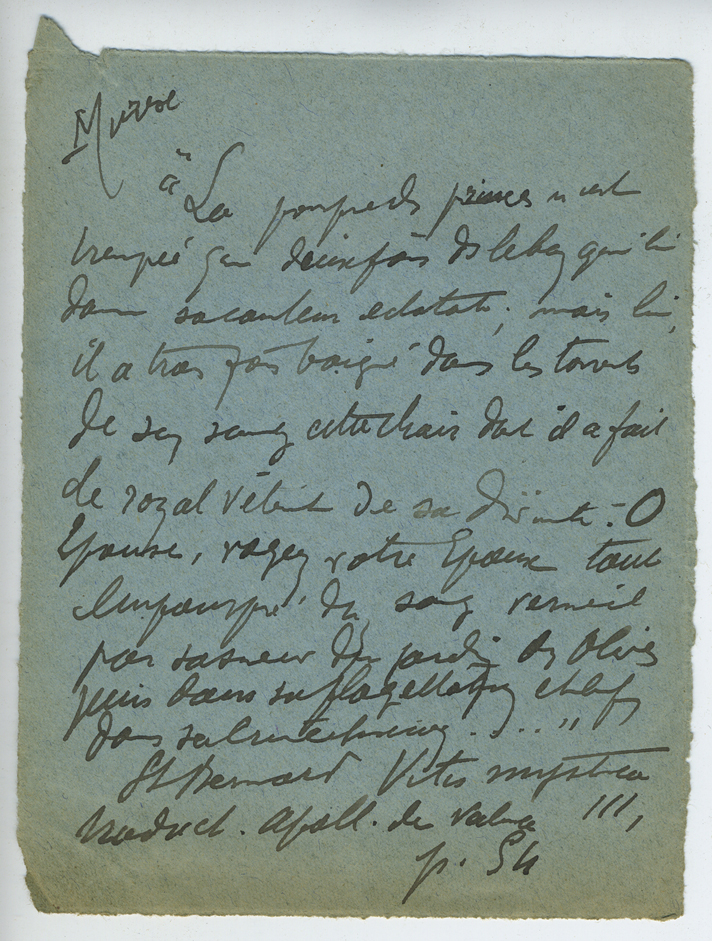 "La pourpre des princes n'est
trempée que deux fois ds le bain qui lui
donne sa couleur eclatante, mais lui,
il a trois fois baigné dans les torrents
de son sang cette chair dont il a fait
le royal vêtement de sa divinité. O
Epouse, voyez votre Epoux tout
empourpré du sang vermeil
par sa sueur du jardin des Olives
puis dans sa flagellation et enfin
dans sa
St Bernard Vitis mystica
traduct. Apoll. de Valence III,
p.